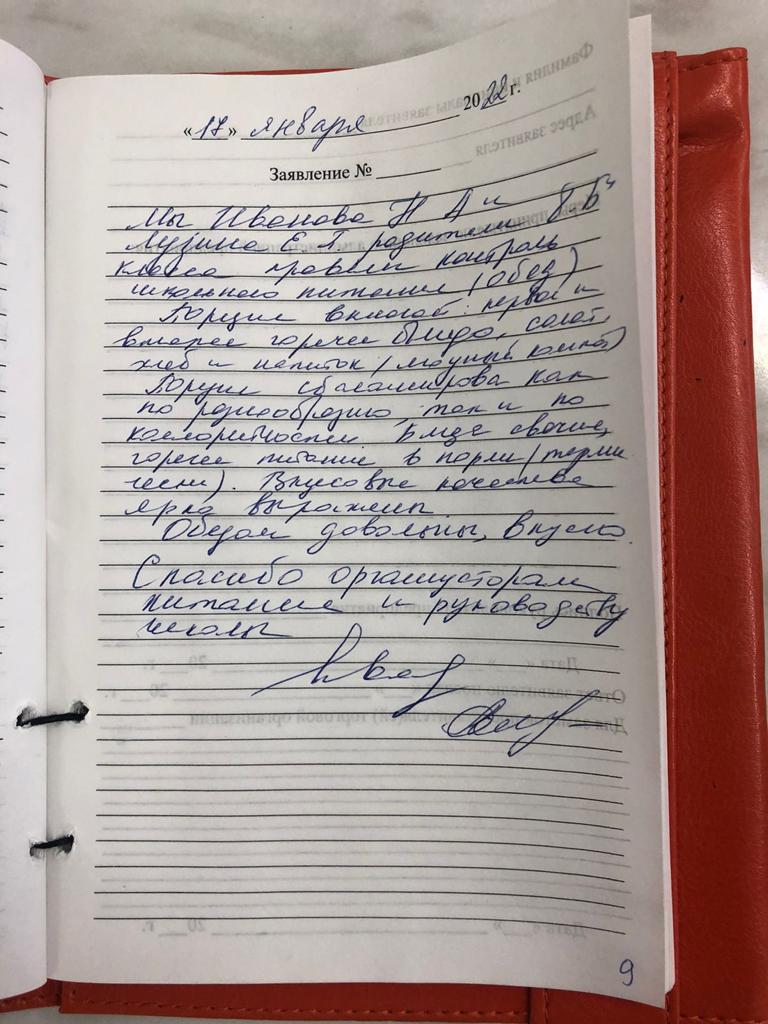 «17» января 2022 г.
Заявление №
Мы Иванова Н А и 8 „Б"
Лузина Е Г родители
класса провели контроль
школьного питания (обед)
Порция включает: первое и
второе горячее блюдо, салат,
хлеб и напиток (модный компот)
Порция сбалансирова как
по разнообразию, так и по
каллорийности. Блюда свежие,
горячее питание в норме (терми
чески). Вкусовые качества
ярко выражены.
Обедом довольны, вкусно.
Спасибо организаторам
питания и руководству
школы
9